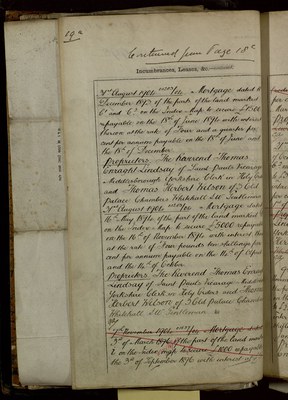 19a
Continued from Page 18a
Incumbrances, Leases, &c.—continued.
August 1904 Mortgage dated
December 1893 of the part of the land marked
6a and 6b on the Index Map to secure £1500
repayable on the 15th of June 1894 with interest
thereon at the rate of Four and a quarter per
cent per annum payable on the 15th of June and
the 15th of December
Proprietors The Reverend Thomas
Lindsay of Saint Pauls Vicarage
Middlesbrough Yorkshire Clerk in Holy Orders
and Thomas Herbert Kelson of 3 Old
Palace Chambers Whitehall S.W. Gentlemen
August 1904 Mortgage dated
16th May 1894 of the part of the land marked
on the Index Map to secure £5000 repayable
on the 16th of November 1894 with interest
at the rate of Four pounds ten shillings per
cent per annum payable on the 14th of April
and the 14th of October
Proprietors The Reverend Thomas
Lindsay of Saint Pauls Vicarage
Yorkshire Clerk in Holy Orders and Thomas
Herbert Kelson of 3 Old Palace Chambers
Whitehall S.W. Gentlemen
November 1904 Mortgage dated
3rd of March 1896 of the part of the land marked
on the Index Map to secure £1000 repayable
the 3rd of September 1896 with interest